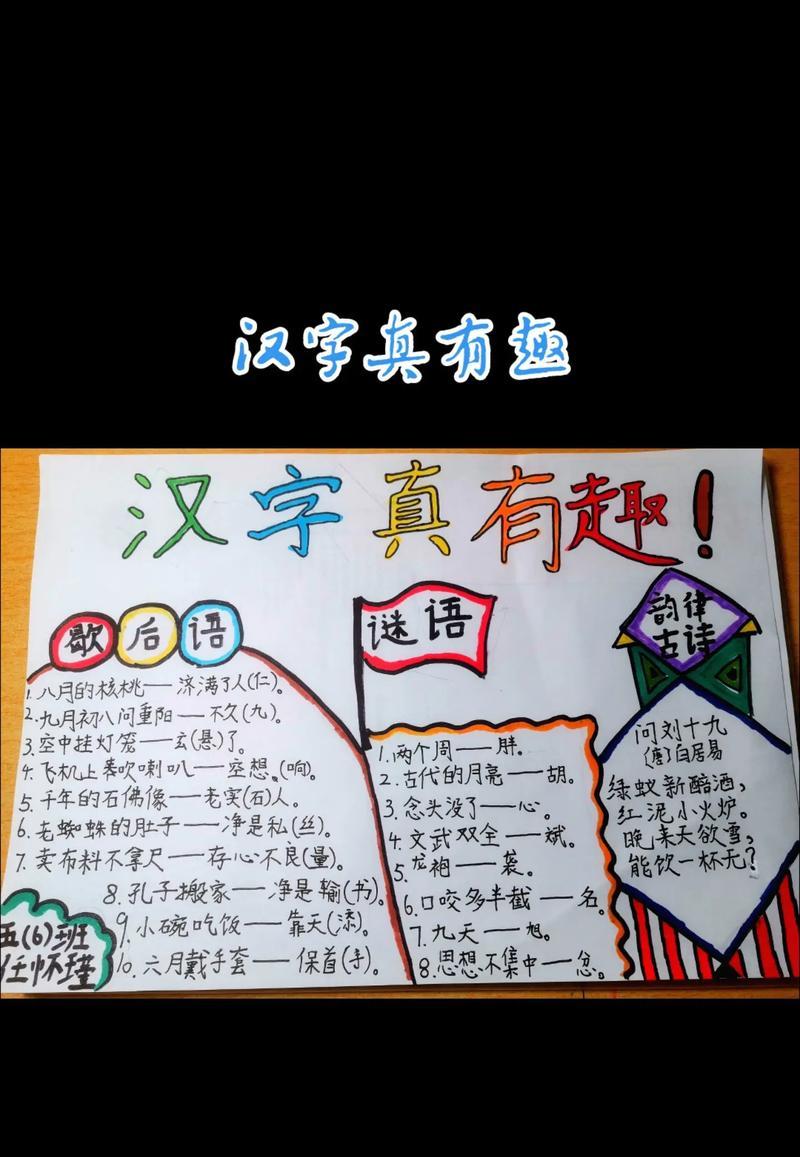 汉字真有趣
汉字真有趣！
歇后语
1. 八月的核桃——济满了人(仁)。
2. 九月初八问重阳——不久(九)。
3. 空中挂灯笼——玄(悬)了。
4. 飞机上奏吹喇叭——空想。(响)。
5. 千年的石佛像——老实(石)人。
6. 老蜘蛛的肚子——净是私(丝)。
7. 卖布料不拿尺——存心不良(量)。
8. 孔子搬家——净是输(书)。
9. 小碗吃饭——靠天(添)。
10. 六月戴手套——保首(手)。
五(6)班
任怀瑾
谜语
1. 两个周——胖。
2. 古代的月亮——胡。
3. 念头没了——心。
4. 文武双全——斌。
5. 龙袍——袭。
6. 口咬多半截——名。
7. 九天——旭。
8. 思想不集中——忿。
韵律
古诗
问刘十九
(唐)白居易
绿蚁新醅酒，
红泥小火炉。
晚来天欲雪，
能饮一杯无？